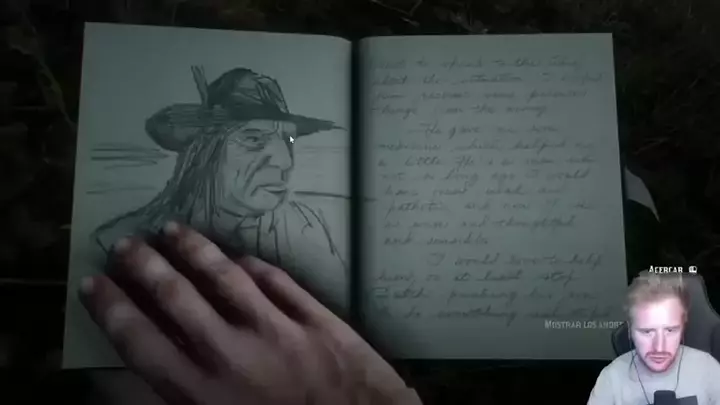 to speak to the
about the situation. I helped
him recover some precious
things from the army.
He gave me some
medicine which helped me
a little. He's a man who
not so long ago I would
have
pathetic and now I see
as wise and thoughtful
and sensible.
I would love to help
him, or at least stop
Dutch pushing his son
to do something
ACERCAR
MOSTRAR LOS